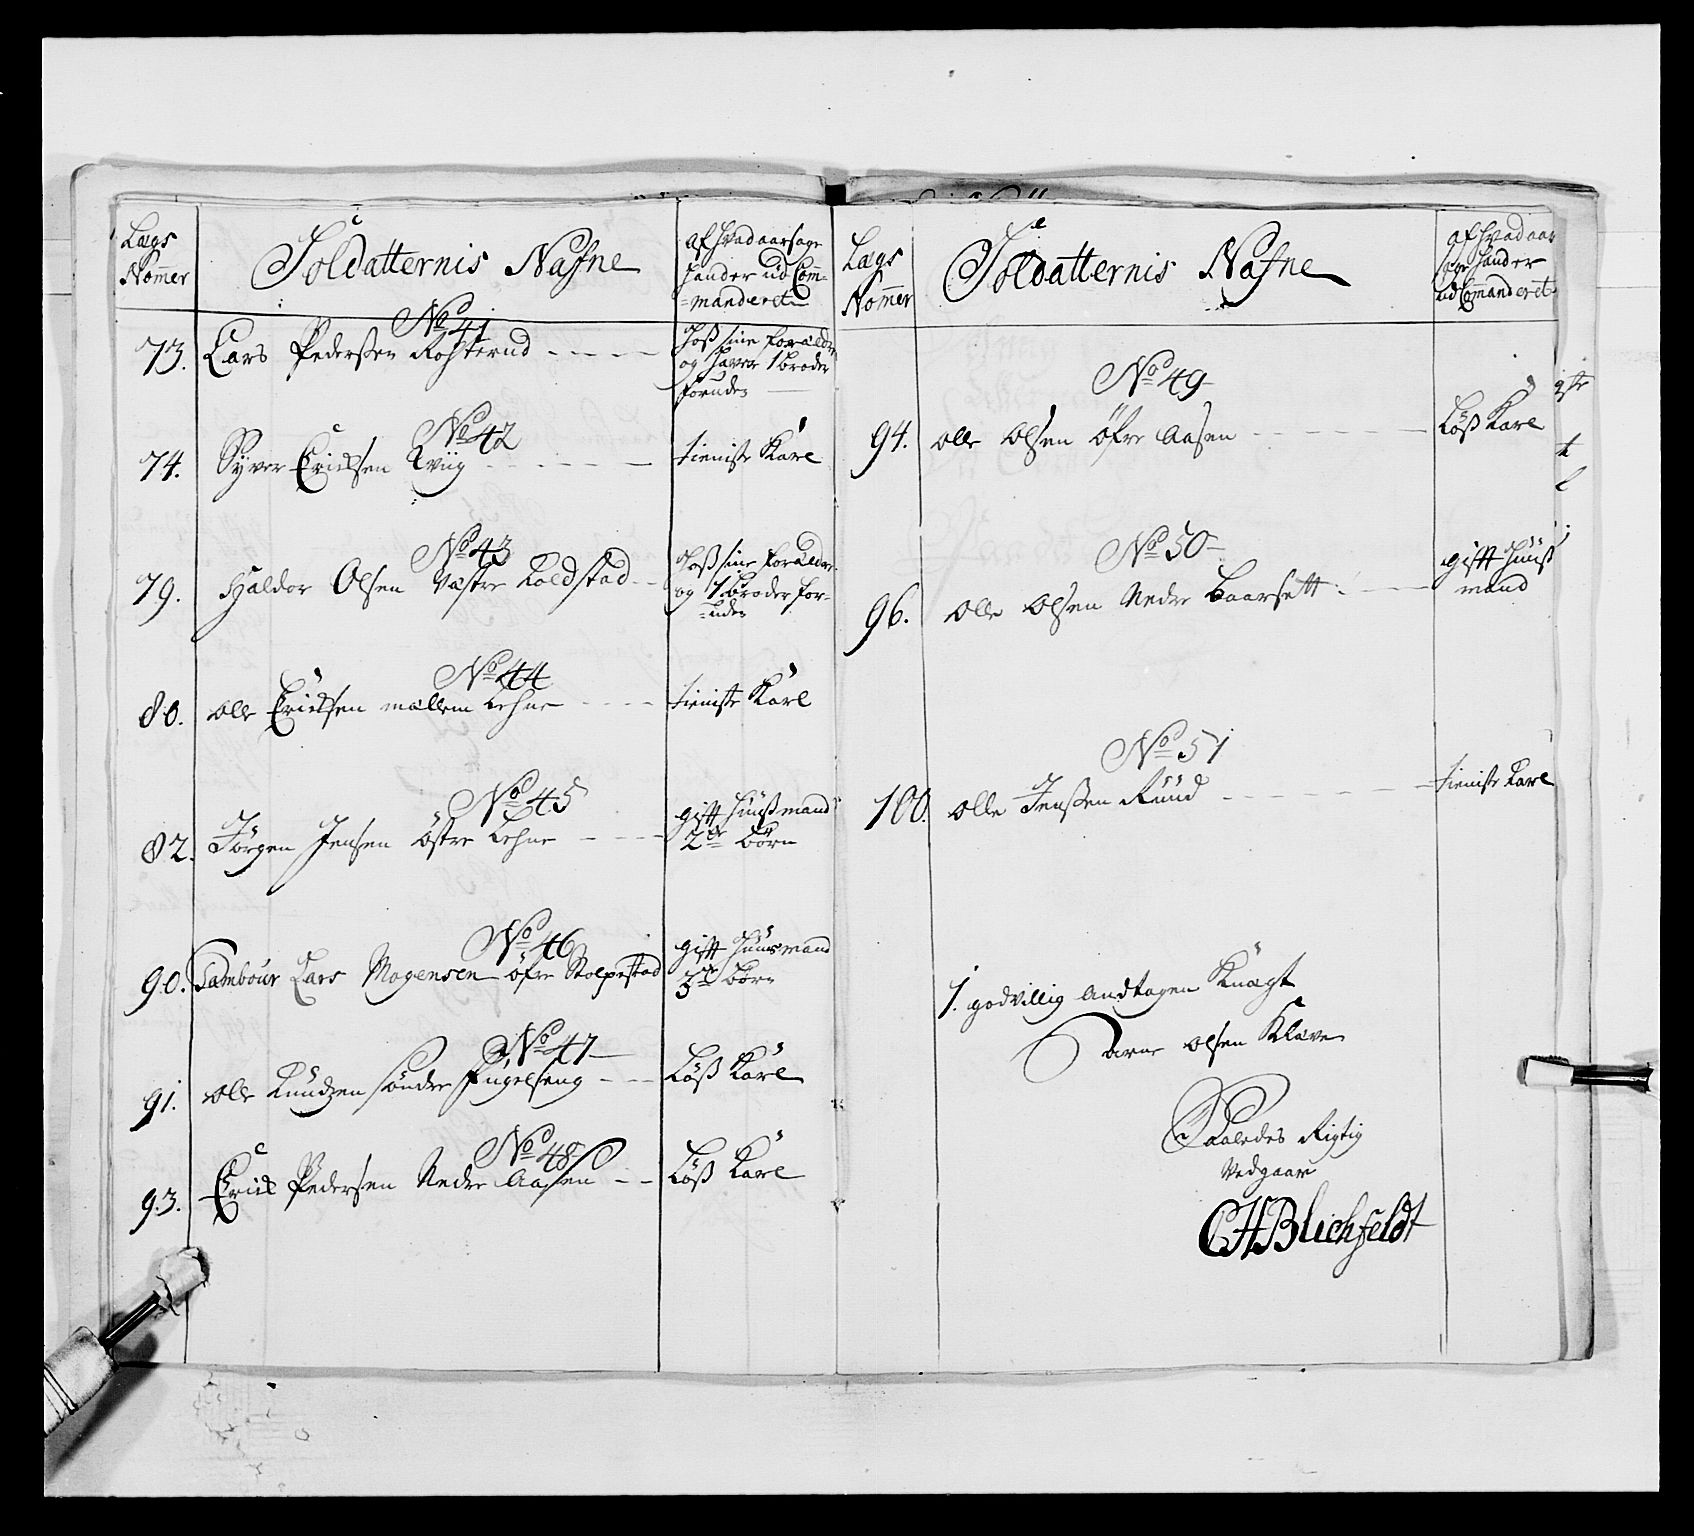 Lægs
Nomer
Soldatternis Nafne
af hvad aarsage
hander ud Com-
manderet
No 41
73. Lars Pedersen Rosterud
Hoß sine forældre
og haver 1 broder
foruden
No 42
74. Syver Ericksen Qviig
tieniste Karl
No 43
79. Haldor Olsen Væstre Koldstad
Hoß sine forældre
og 1 broder for-
uden
No 44
80. olle Ericksen mællem Lehne
tieniste Karl
No 45
82. Jörgen Jensen östre Lehne
gift Huußmand
2de börn
No 46
90. Tambour Lars Mogensen öfre Stolpestad
gift Huusmand
3de börn
No 47
91. olle Knudzen söndre Fugelseng
Löß Karl
No 48
93. Erick Pedersen Nedre Aasen
Löß Karl
Lægs
Nomer
Soldatternis Nafne
af hvad aar
sage hander
ud Comanderet
No 49
94. olle olsen öfre Aasen
Löß Karl
No 50
96. olle olsen Nedre Baarsett
gift Huuß
mand
No 51
100. olle Jenßen Ruud
tieniste Karl
1. godvillig andtagen Knægt
arne olsen Klave
Saaledes Rigtig
Vedgaar
CHBlichfeldt